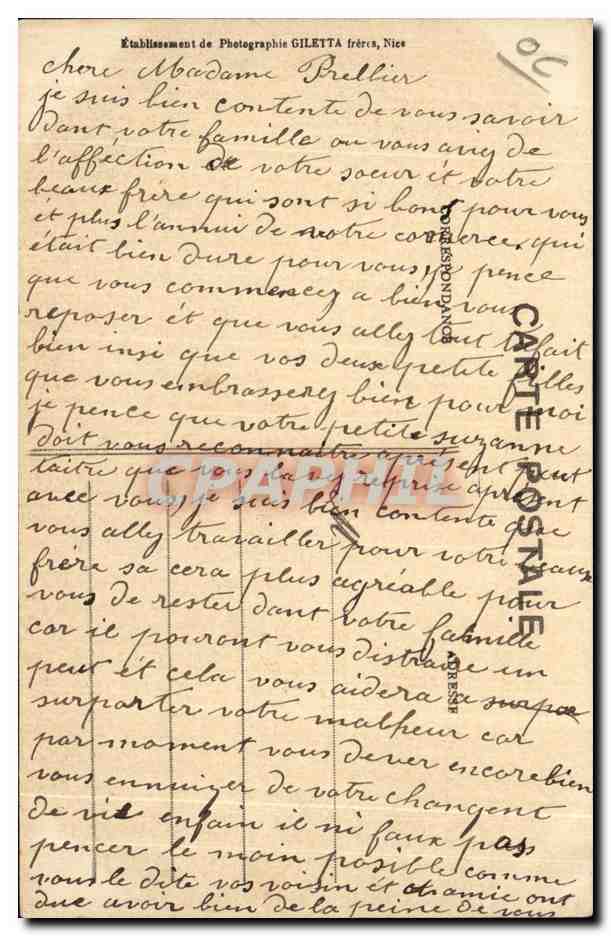 Établissement de Photographie GILETTA frères, Nice
chere Madame Prellier
je suis bien contente de vous savoir
dant votre famille ou vous aviez de
l'afféction de votre soeur ét votre
beaux frére qui sont si bons pour vous
ét plus l'annui de votre comerce, qui
était bien dure pour vous, je pence
que vous commencez a bien vous
reposer ét que vous allez tout a fait
bien insi que vos deux petite filles
que vous embrasserez bien pour moi
je pence que votre petite suzanne
doit vous reconnaitre aprésent peut
taitre que vous l'avez reprise aprésent
avec vous, je suis bien contente que
vous allez travailler pour votre beaux
frére sa cera plus agréable pour
vous de rester dant votre famille
car il pouront vous distraire un
peut ét cela vous aidera a
surporter votre malheur car
par moment vous dever encore bien
vous ennuiyer de votre changent
de vie enfain il ni faux pas
pencer le moin posible comme
vous le dite vos voisin ét amie ont
due avoir bien de la peine de vous
CORRESPONDANCE
CARTE POSTALE
ADRESSE
CPAPHIL